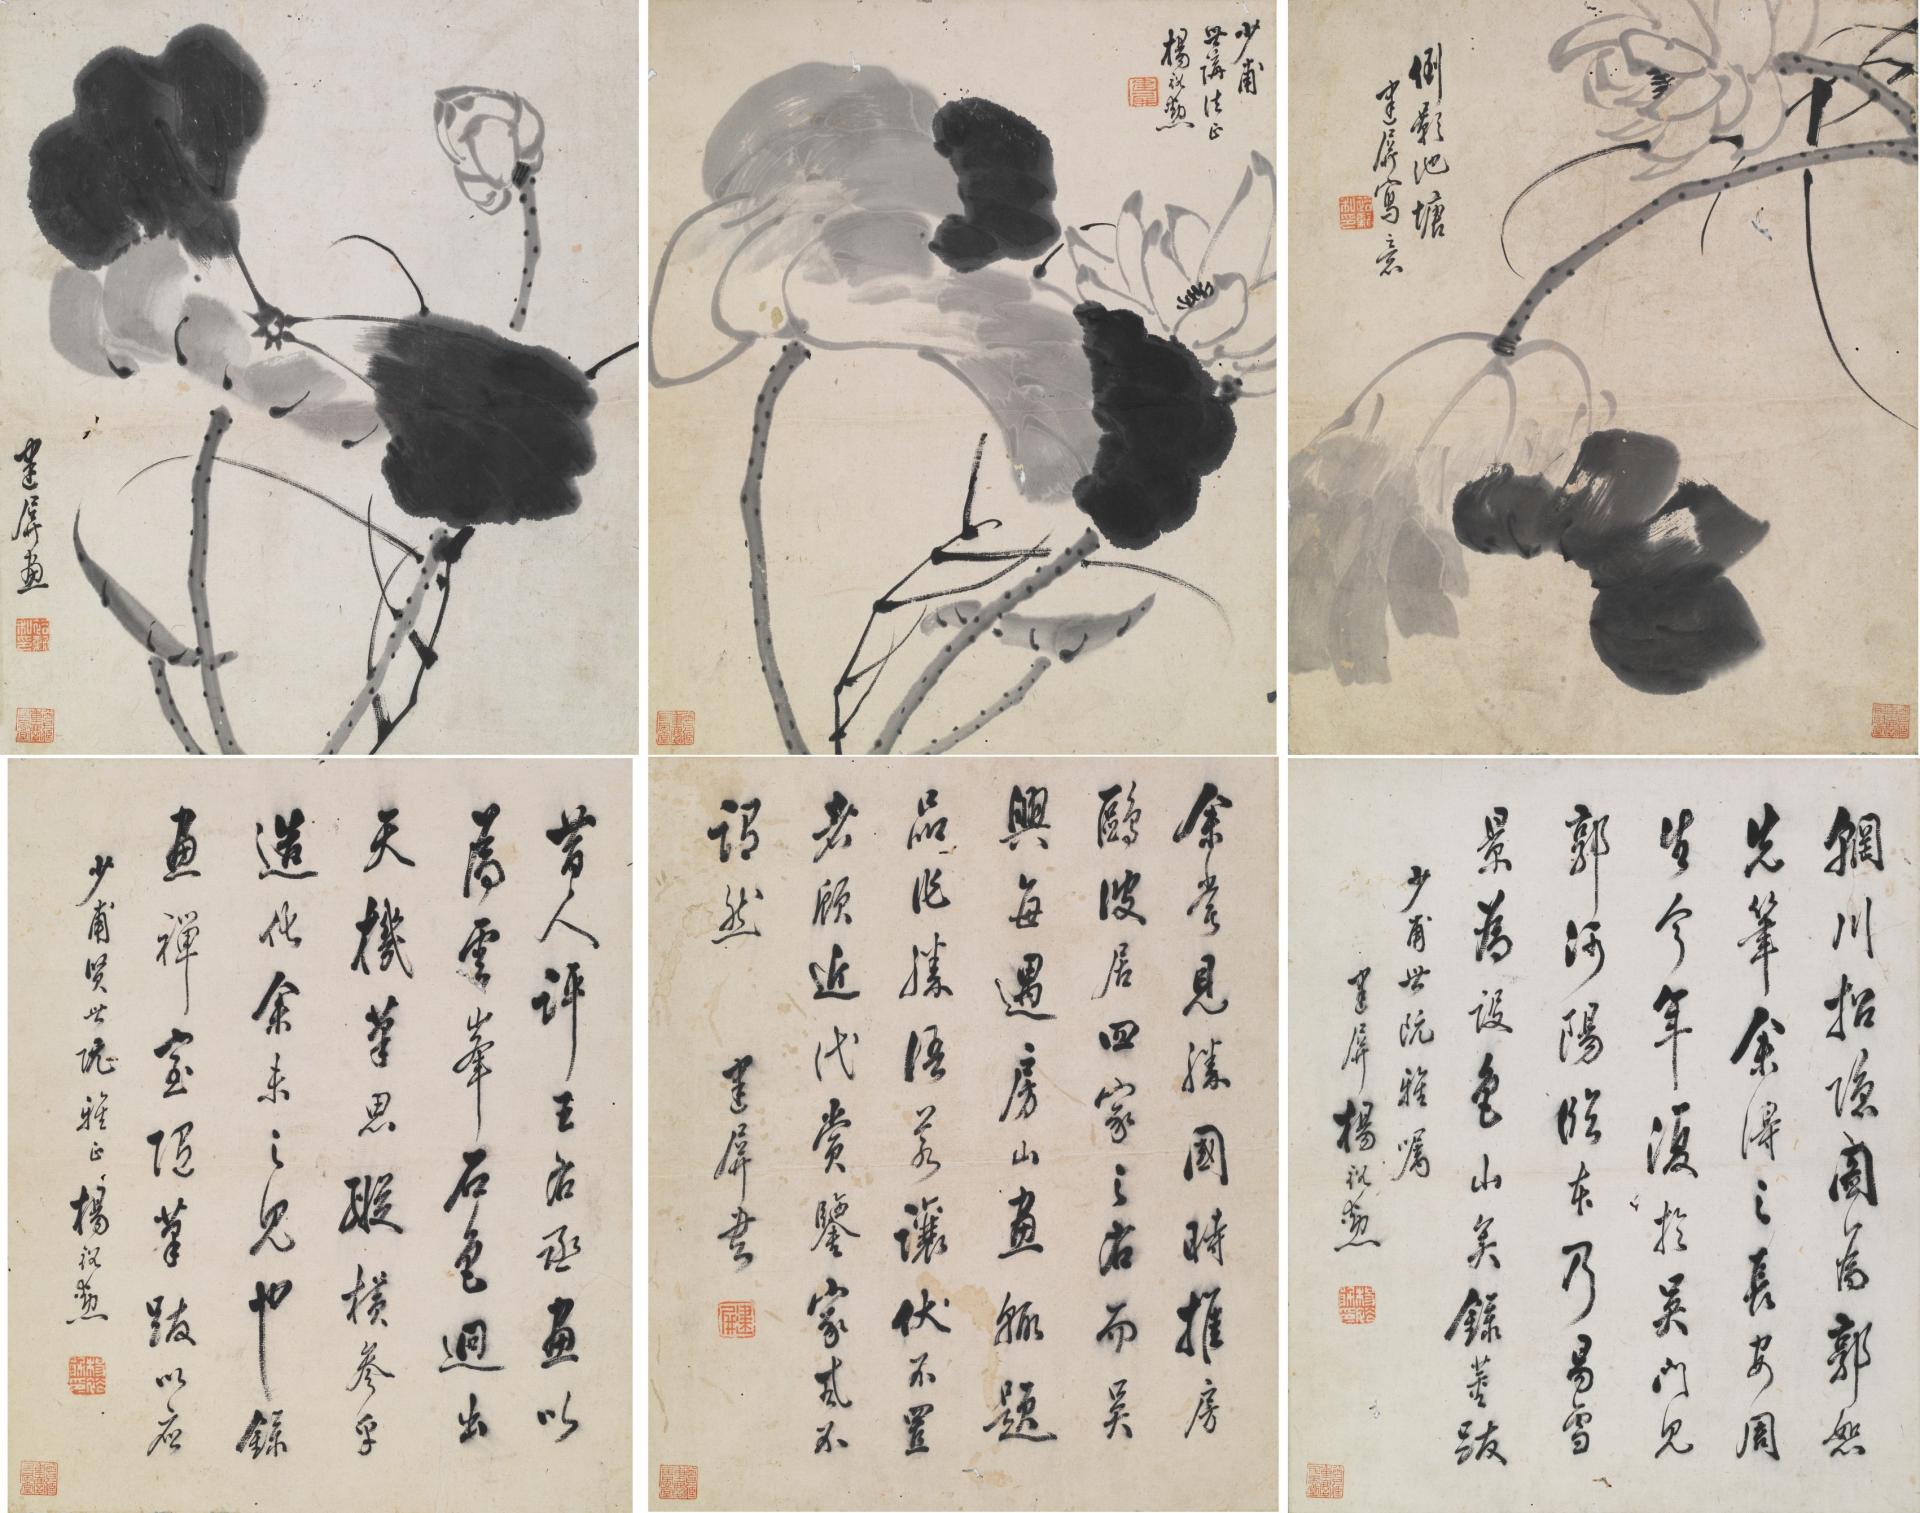 建屏畫
少甫
世講法正
楊祖勲
倒影池塘
建屏寫意
昔人評王右丞畫以
爲雲峯石色迥出
天機筆思縱橫參乎
造化余未之見也錄
畫禪室隨筆跋以應
少甫賢世阮雅正楊祖勲
余嘗見勝國時推房
鷗波居四家之右而吳
興每遇房山畫輒題
品作勝語若讓伏不置
者顧近代賞鑒家或不
謂然
建屏書
輞川招隱圖爲郭恕
先筆余得之長安周
生今年復於吳門見
郭河陽臨本乃易雪
景爲設色山矣錄董跋
少甫世阮雅囑
建屏楊祖勲